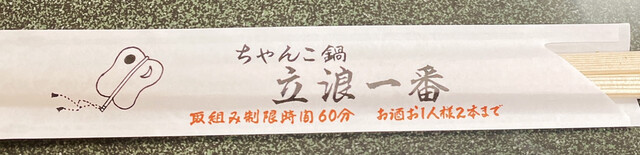 ちゃんこ鍋
立浪一番
取組み制限時間60分　お酒お1人様2本まで